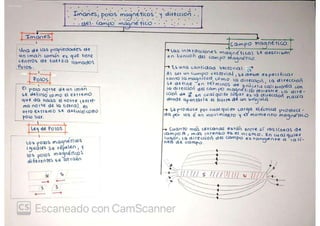 Imanes, polos magnéticos y dirección
del campo magnético
Imanes
Una de las propiedades de
un imán común es que tiene
centros de fuerza llamados
Polos.
Polos
El polo norte de un imán
se define como el extremo
que da hacia el norte
norte de la tierra). El
otro extremo se define como
polo sur.
Ley de Polos
Los polos magnéticos
iguales se repelen, y
los polos magnéticos
diferentes se atraen
N
S
S
Campo magnético
Las interacciones magnéticas se describen
en función del campo magnético
Es una cantidad vectorial
Al ser un campo vectorial, se debe especificar
como la magnitud, como la dirección, la dirección
se define en términos de
la dirección del campo magnético
donde apuntaría el norte de un brújula
Se produce por cualquier carga eléctrica
por si en movimiento y el momento magnético
Cuanto más cercanas están entre sí las líneas de
campo B, más intenso es el mismo. En cualquier
lugar, la dirección del campo es tangente a la lí-
nea de campo
CS Escaneado con CamScanner